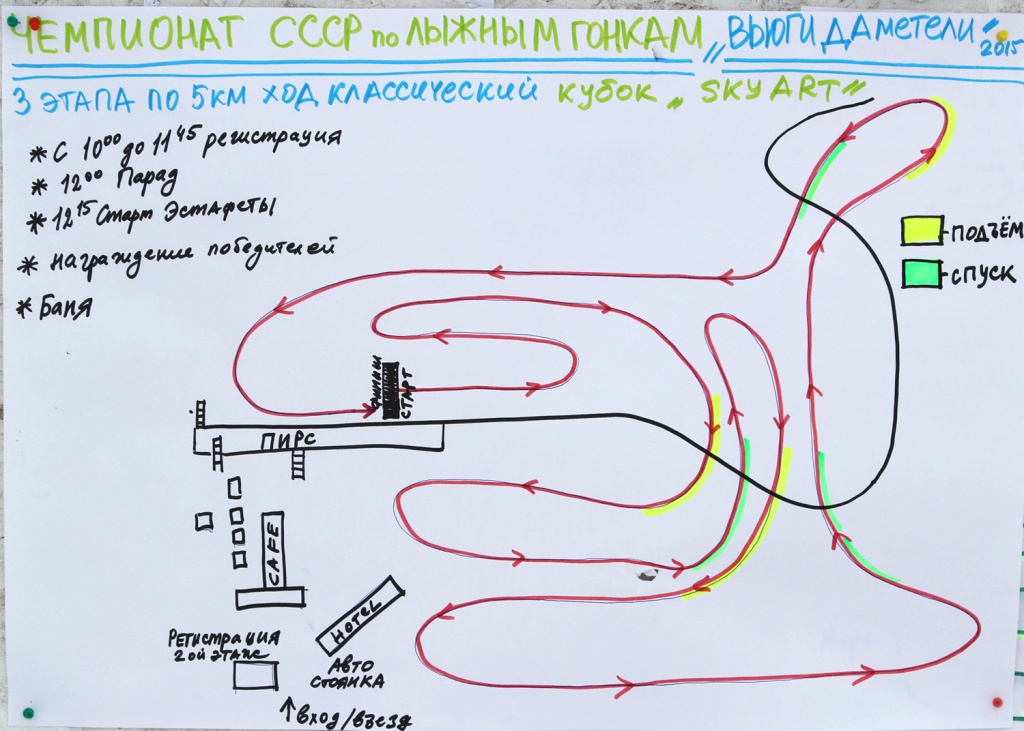 ЧЕМПИОНАТ СССР по ЛЫЖНЫМ ГОНКАМ „ВЬЮГИ ДА МЕТЕЛИ" 2015
3 ЭТАПА ПО 5КМ ХОД КЛАССИЧЕСКИЙ КУБОК „SKY ART"
* С 10⁰⁰ до 11⁴⁵ регистрация
* 12⁰⁰ Парад
* 12¹⁵ Старт Эстафеты
* Награждение победителей
* Баня
ПОДЪЁМ
СПУСК
ФИНИШ
СТАРТ
ПИРС
CAFE
HOTEL
РЕГИСТРАЦИЯ
2ОЙ ЭТАЖ
АВТО
СТОЯНКА
вход/въезд